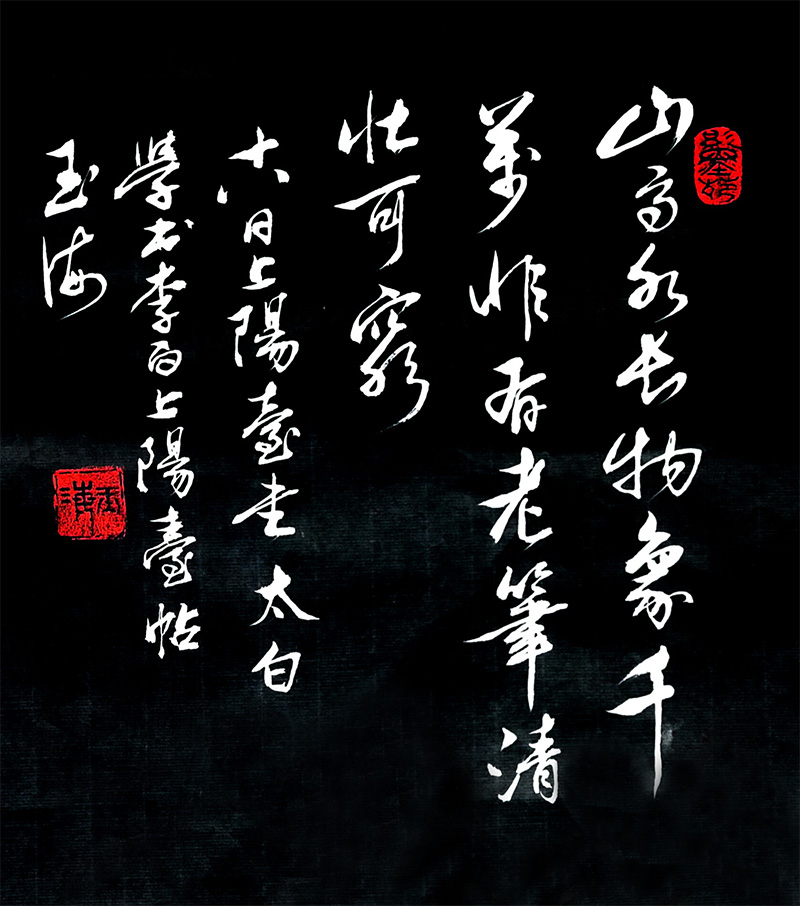 山高水長物象千
萬非有老筆清
壯可窮
十八日上陽臺書太白
學书李白上陽臺帖
玉海
玉海